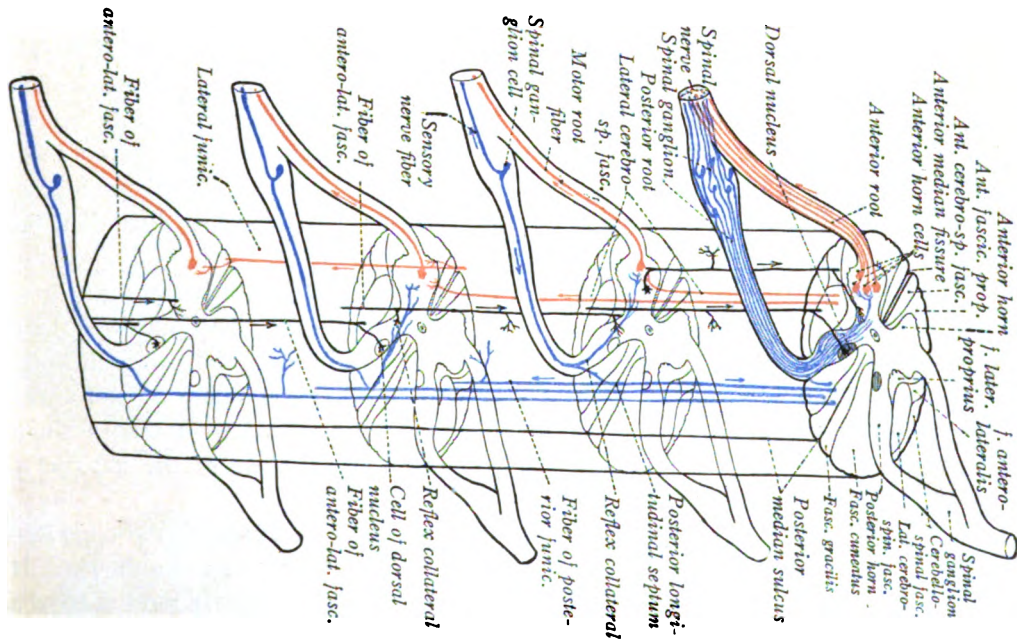 Anterior horn
Ant. fascic. prop.
Ant. cerebro-sp. fasc.
Anterior median fissure
Anterior horn cells
Anterior root
Dorsal nucleus
Spinal
nerve
Spinal ganglion
Posterior root
Lateral cerebro-
sp. fasc.
Motor root
fiber
Spinal gan-
glion cell
Sensory
nerve fiber
Fiber of
antero-lat. fasc.
Lateral funic.
Fiber of
antero-lat. fasc.
f. antero-
lateralis
f. later.
proprius
Spinal
ganglion
Cerebello-
spinal fasc.
Lat. cerebro-
spin. fasc.
Posterior horn
Fasc. cuneatus
Fasc. gracilis
Posterior
median sulcus
Posterior longi-
tudinal septum
Reflex collateral
Fiber of poste-
rior funic.
Reflex collateral
Cell of dorsal
nucleus
Fiber of
antero-lat. fasc.